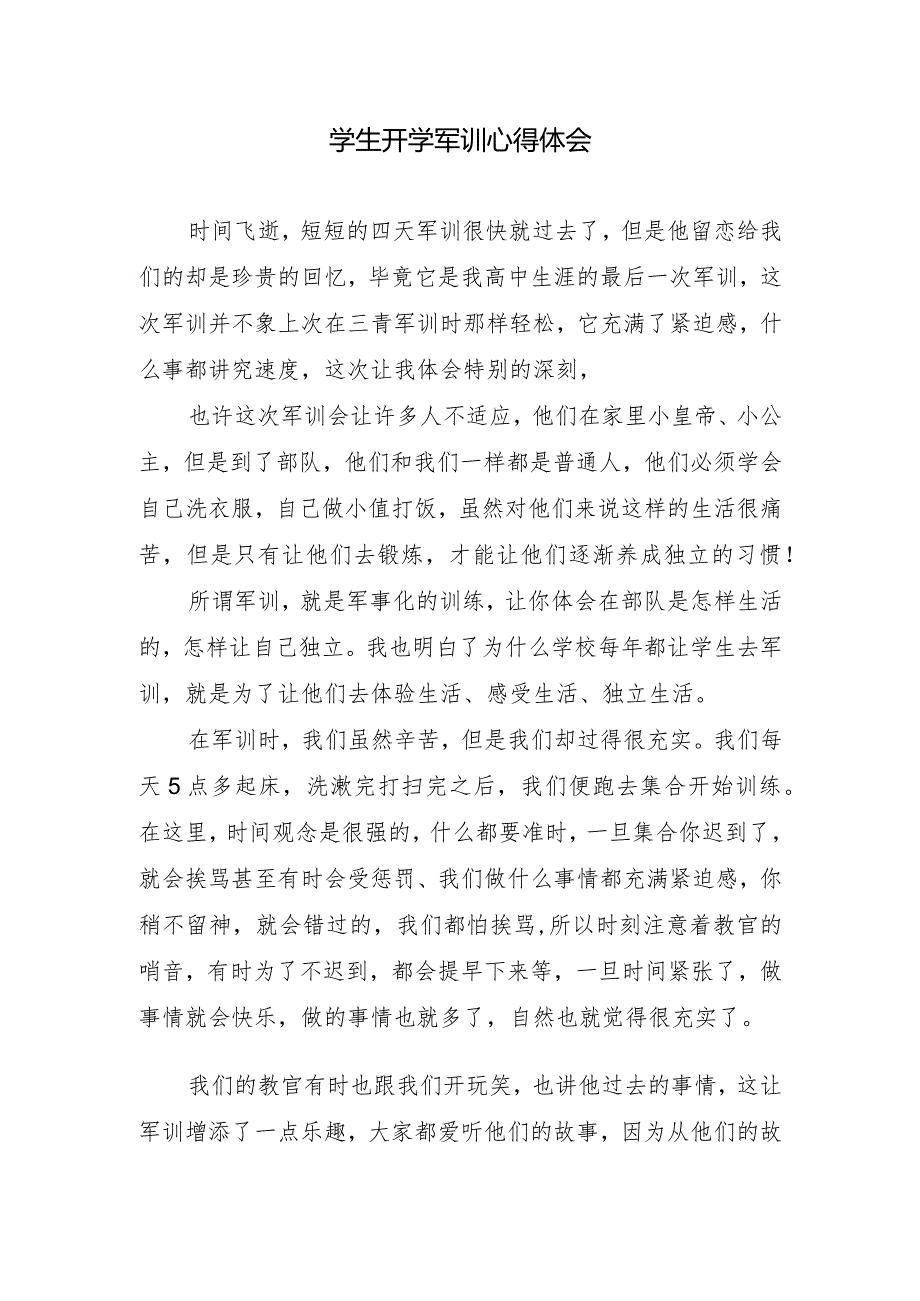 学生开学军训心得体会
时间飞逝，短短的四天军训很快就过去了，但是他留恋给我
们的却是珍贵的回忆，毕竟它是我高中生涯的最后一次军训，这
次军训并不象上次在三青军训时那样轻松，它充满了紧迫感，什
么事都讲究速度，这次让我体会特别的深刻，
也许这次军训会让许多人不适应，他们在家里小皇帝、小公
主，但是到了部队，他们和我们一样都是普通人，他们必须学会
自己洗衣服，自己做小值打饭，虽然对他们来说这样的生活很痛
苦，但是只有让他们去锻炼，才能让他们逐渐养成独立的习惯！
所谓军训，就是军事化的训练，让你体会在部队是怎样生活
的，怎样让自己独立。我也明白了为什么学校每年都让学生去军
训，就是为了让他们去体验生活、感受生活、独立生活。
在军训时，我们虽然辛苦，但是我们却过得很充实。我们每
天5点多起床，洗漱完打扫完之后，我们便跑去集合开始训练。
在这里，时间观念是很强的，什么都要准时，一旦集合你迟到了，
就会挨骂甚至有时会受惩罚、我们做什么事情都充满紧迫感，你
稍不留神，就会错过的，我们都怕挨骂,所以时刻注意着教官的
哨音，有时为了不迟到，都会提早下来等，一旦时间紧张了，做
事情就会快乐，做的事情也就多了，自然也就觉得很充实了。
我们的教官有时也跟我们开玩笑，也讲他过去的事情，这让
军训增添了一点乐趣，大家都爱听他们的故事，因为从他们的故